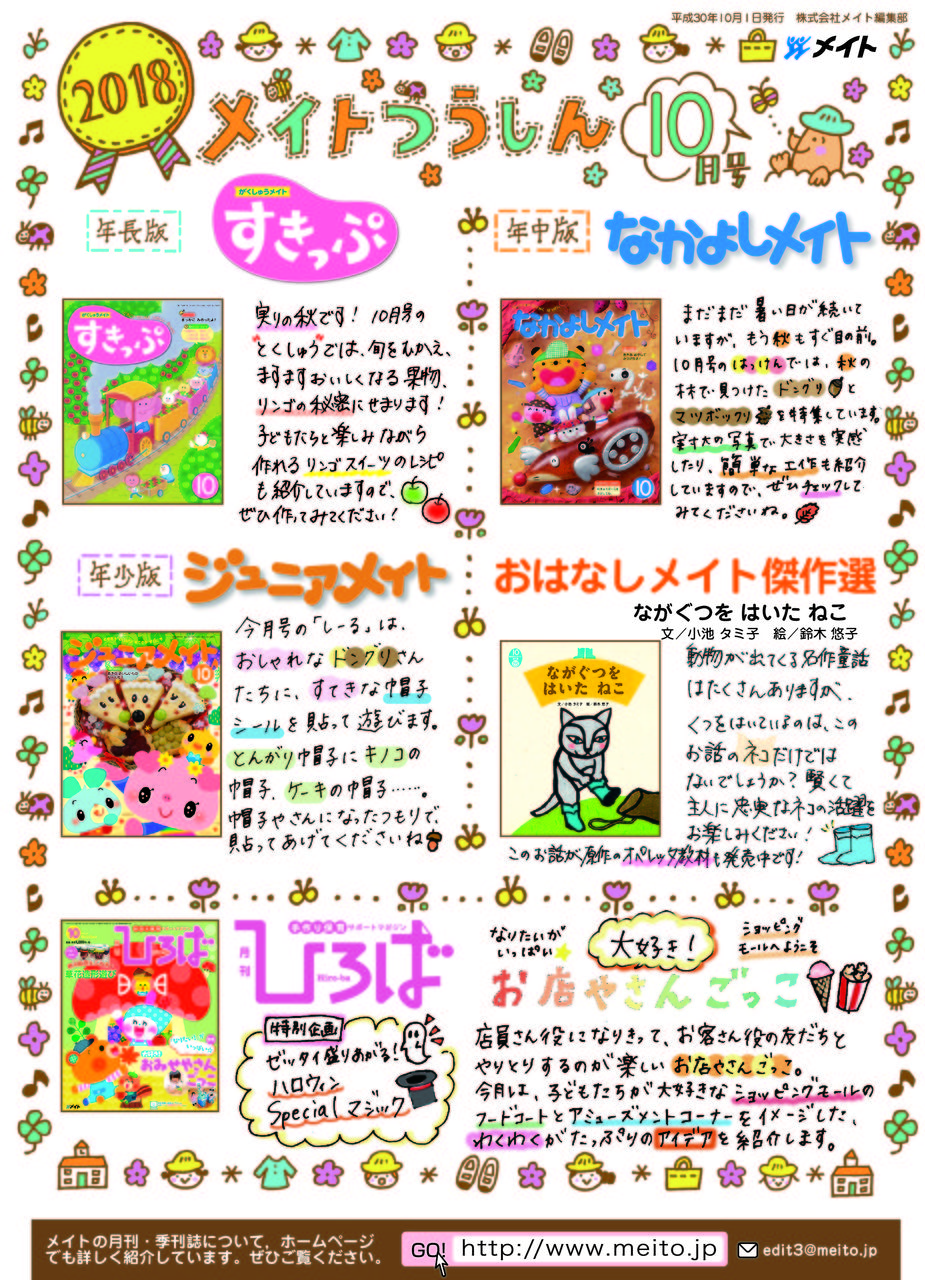 平成30年10月1日発行 株式会社メイト編集部
メイト
2018
メイトつうしん
10月号
年長版
がくしゅうメイト
すきっぷ
がくしゅうメイト
すきっぷ
10
実りの秋です！ 10月号の
"とくしゅう"では、旬をむかえ、
ますますおいしくなる果物、
リンゴの秘密にせまります！
子どもたちと楽しみながら
作れるリンゴスイーツのレシピ
も紹介していますので、
ぜひ作ってみてください！
年中版
なかよしメイト
なかよしメイト
10
まだまだ暑い日が続いて
いますが、もう秋もすぐ目の前。
10月号のはっけんでは、秋の
林で見つけたドングリと
マツボックリを特集しています。
実寸大の写真で大きさを実感
したり、簡単な工作も紹介
していますので、ぜひチェックして
みてくださいね。
年少版
ジュニアメイト
ジュニアメイト
10
今月号の「しーる」は、
おしゃれなドングリさん
たちに、すてきな帽子
シールを貼って遊びます。
とんがり帽子にキノコの
帽子、ケーキの帽子……。
帽子やさんになったつもりで、
貼ってあげてくださいね
おはなしメイト傑作選
ながぐつを はいた ねこ
文／小池 タミ子 絵／鈴木 悠子
ながぐつを
はいた ねこ
文／小池 タミ子 絵／鈴木 悠子
動物が出てくる名作童話
はたくさんありますが、
くつをはいているのは、この
お話のネコだけでは
ないでしょうか？賢くて
主人に忠実なネコの活躍を
お楽しみください！
このお話が原作のオペレッタ教材も発売中です！
10
ひろば
おみせやさん
ごっこ
手作り保育サポートマガジン
月刊
ひろば
Hiro-ba
特別企画
ゼッタイ盛りあがる！
ハロウィン
Specialマジック
なりたいが
いっぱい
大好き！
ショッピング
モールへようこそ
お店やさんごっこ
店員さん役になりきって、お客さん役の友だちと
やりとりするのが楽しいお店やさんごっこ。
今月は、子どもたちが大好きなショッピングモールの
フードコートとアミューズメントコーナーをイメージした、
わくわくがたっぷりのアイデアを紹介します。
メイトの月刊・季刊誌について、ホームページ
でも詳しく紹介しています。ぜひご覧ください。
GO!
http://www.meito.jp
edit3@meito.jp